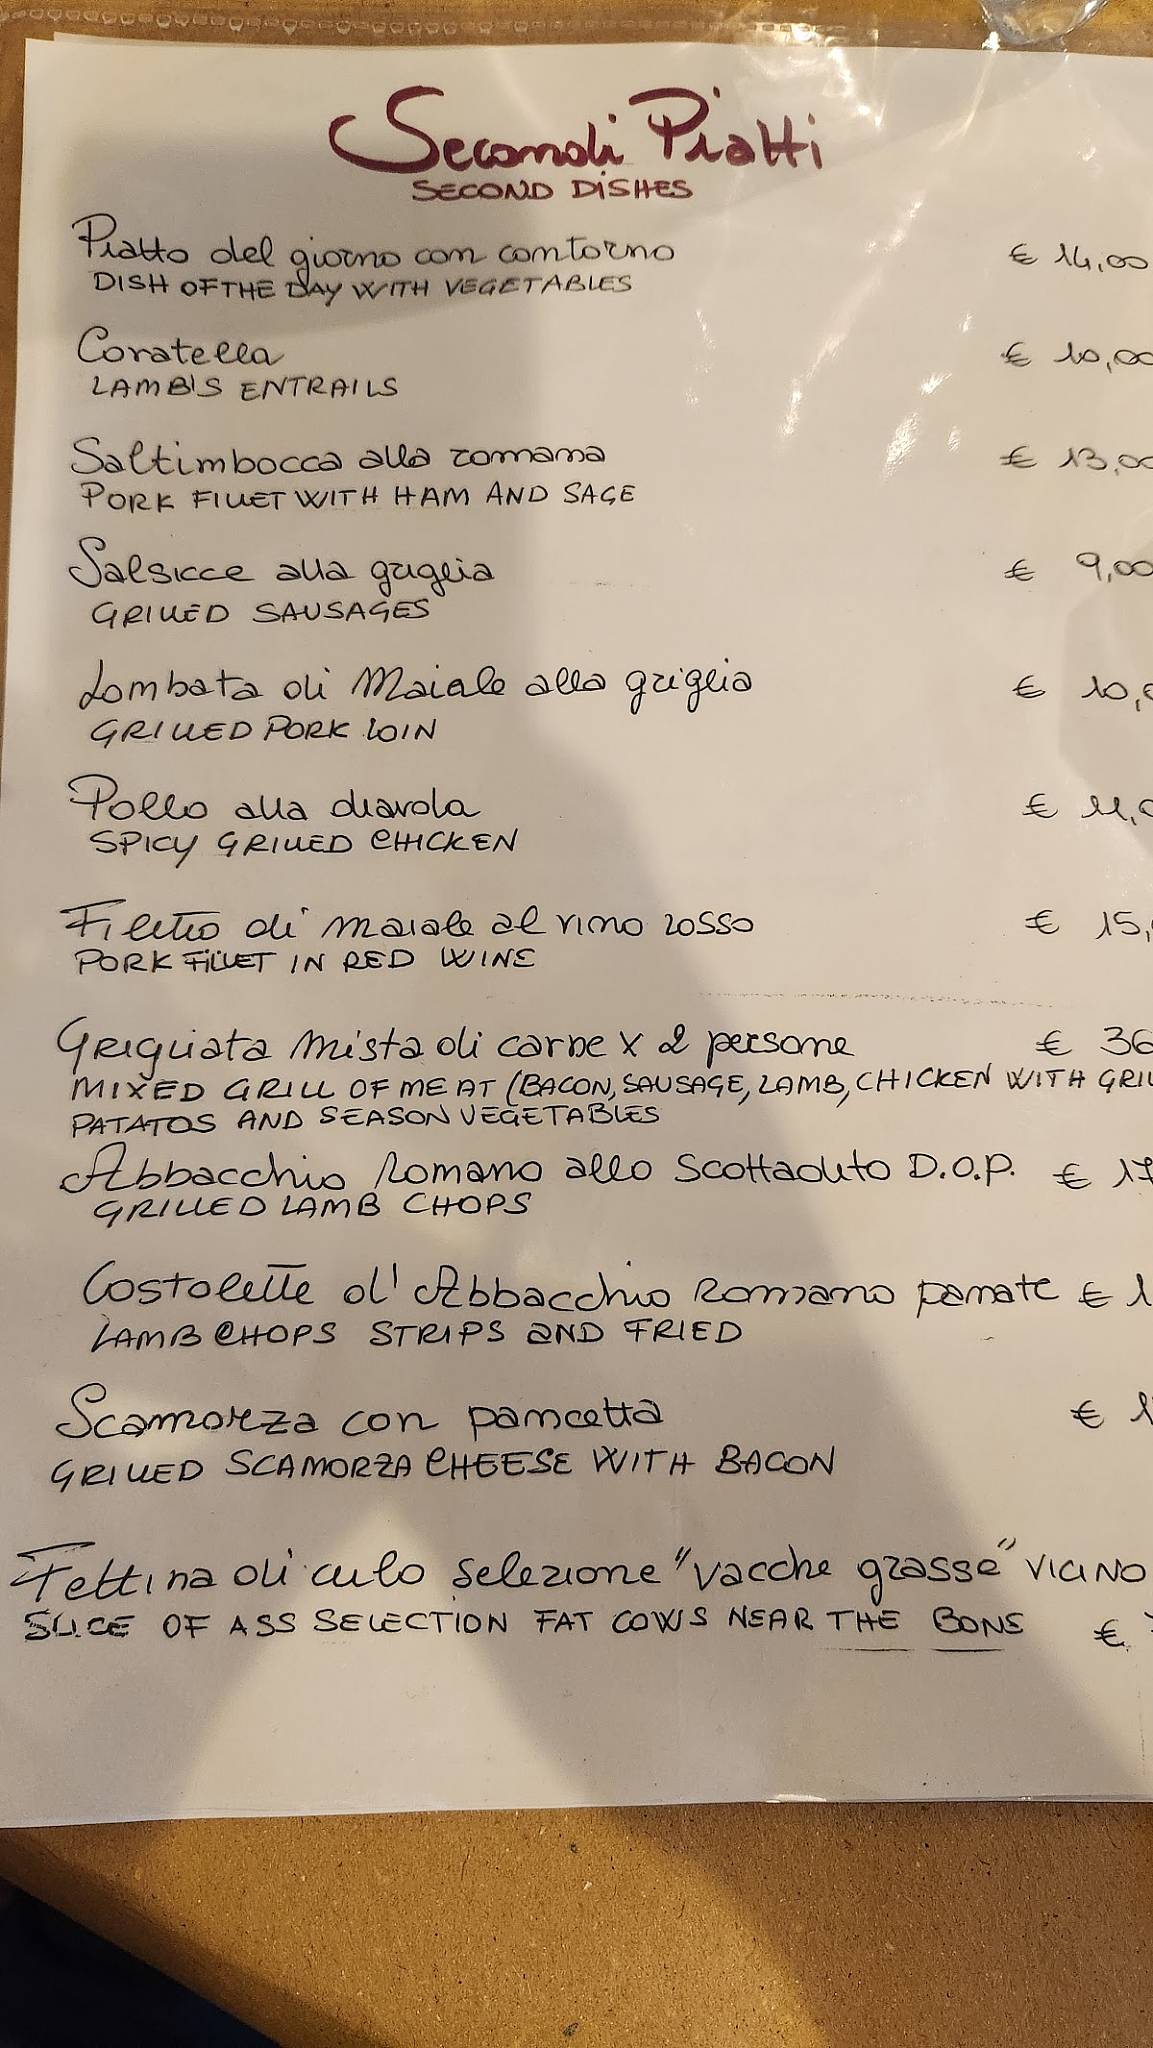 Secondi Piatti
SECOND DISHES
Piatto del giorno con contorno € 14,00
DISH OF THE DAY WITH VEGETABLES
Coratella € 10,00
LAMB'S ENTRAILS
Saltimbocca alla romana € 13,00
PORK FILLET WITH HAM AND SAGE
Salsicce alla griglia € 9,00
GRILLED SAUSAGES
Lombata di Maiale alla griglia € 10,
GRILLED PORK LOIN
Pollo alla diavola € 11,
SPICY GRILLED CHICKEN
Filetto di maiale al vino rosso € 15,
PORK FILLET IN RED WINE
Grigliata Mista di carne x 2 persone € 36
MIXED GRILL OF MEAT (BACON, SAUSAGE, LAMB, CHICKEN WITH GRIL
PATATOS AND SEASON VEGETABLES
Abbacchio Romano allo Scottadito D.O.P. € 17
GRILLED LAMB CHOPS
Costolette d'Abbacchio Romano panate € 1
LAMB CHOPS STRIPS AND FRIED
Scamorza con pancetta € 1
GRILLED SCAMORZA CHEESE WITH BACON
Fettina di culo selezione "vacche grasse" VICINO
SLICE OF ASS SELECTION FAT COWS NEAR THE BONS €